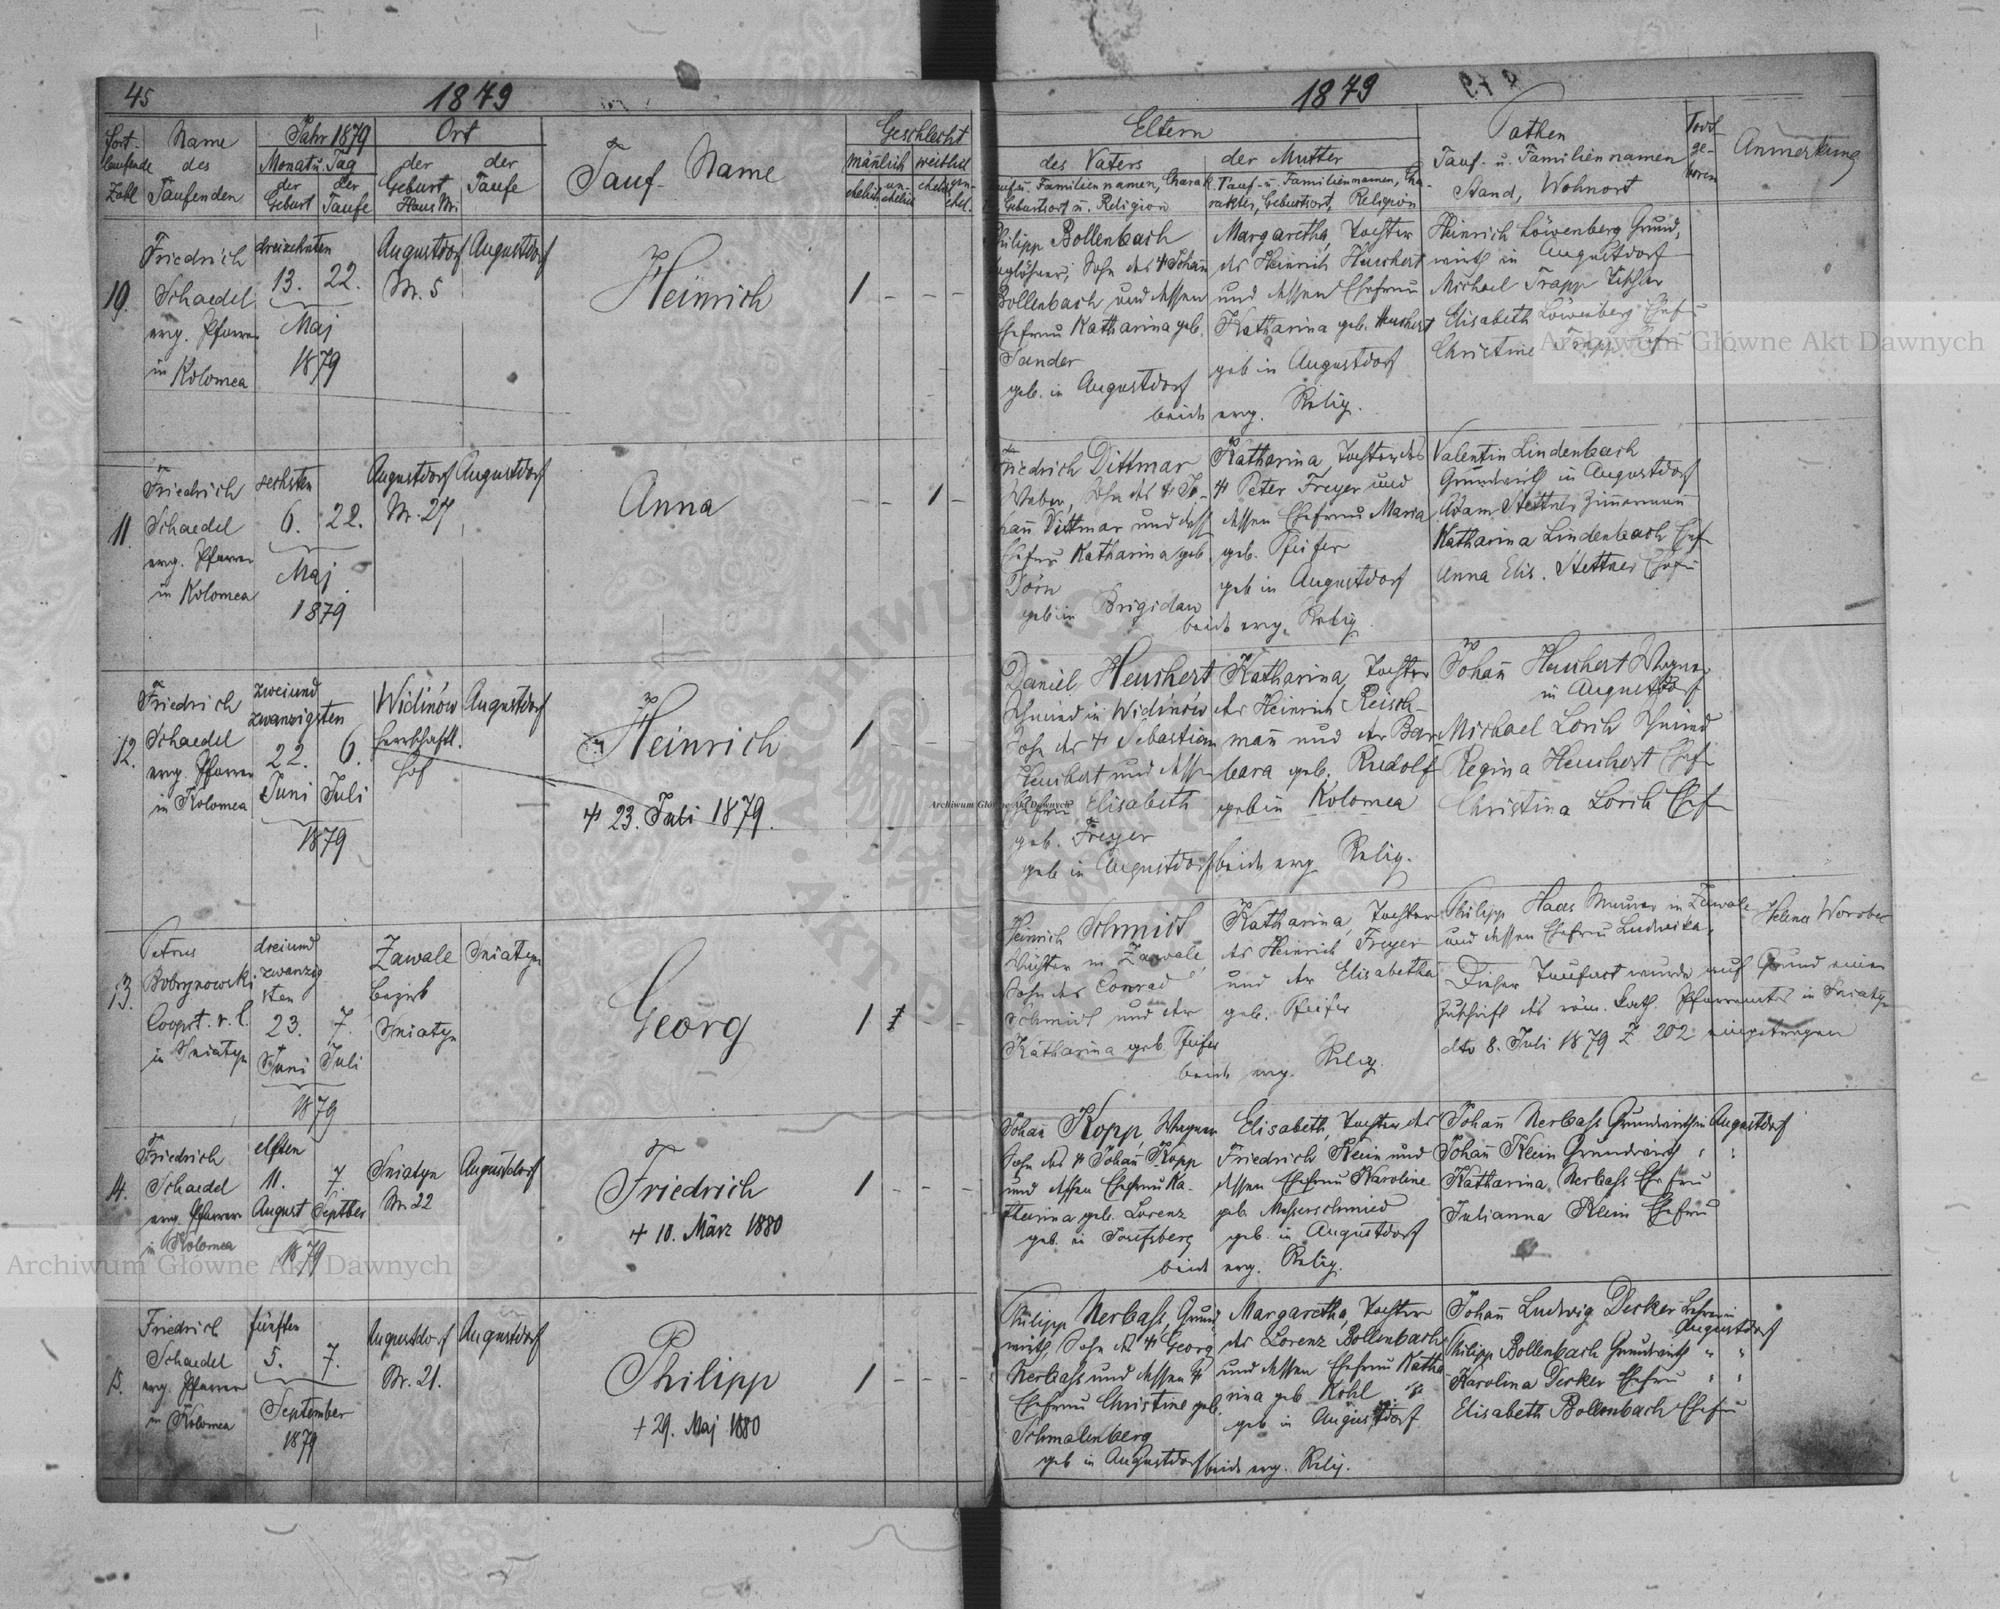 45
1879
Fort-
laufende
Zahl
Name
des
Taufenden
Jahr 1879
Monat u. Tag
der
Geburt
der
Taufe
Ort
der
Geburt
Haus Nr.
der
Taufe
Tauf-Name
Geschlecht
mänlich
weiblich
ehelich
un-
ehelich
ehelich
un-
ehel.
10.
Friedrich
Schaedel
evg. Pfarrer
in Kolomea
dreizehnten
13. 22.
Maj
1879
Augustdorf
Nr. 5
Augustdorf
Heinrich
1 - - -
11.
Friedrich
Schaedel
evg. Pfarrer
in Kolomea
sechsten
6. 22.
Maj
1879
Augustdorf
Nr. 27
Augustdorf
Anna
- - 1 -
12.
Friedrich
Schaedel
evg. Pfarrer
in Kolomea
zweiund
zwanzigsten
22. 6.
Juni Juli
1879
Widinów
herrschaftl.
Hof
Augustdorf
Heinrich
+ 23. Juli 1879.
1 - - -
13.
Petrus
Bobrynowski
Cooprt. r. l.
in Sniatyn
dreiund
zwanzig
sten
23. 7.
Juni Juli
1879
Zawale
Bezirk
Sniatyn
Sniatyn
Georg
1
14.
Friedrich
Schaedel
evg. Pfarrer
in Kolomea
elften
11. 7.
August Septber
1879
Sniatyn
Nr. 22
Augustdorf
Friedrich
+ 10. März 1880
1 - - -
15.
Friedrich
Schaedel
evg. Pfarrer
in Kolomea
fünften
5. 7.
September
1879
Augustdorf
Nr. 21.
Augustdorf
Philipp
+ 29. Maj 1880
1 - - -
1879
Eltern
des Vaters
Tauf u. Familiennamen, Charak.
Geburtsort u. Religion
der Mutter
Tauf- u. Familiennamen, Cha-
rakter, Geburtsort, Religion
Pathen
Tauf- u. Familiennamen
Stand, Wohnort
Todt
ge-
boren
Anmerkung
Philipp Bollenbach
Taglöhner, Sohn des + Johañ
Bollenbach und dessen
Ehefrau Katharina geb.
Sander
geb. in Augustdorf
Margaretha, Tochter
des Heinrich Heuchert
und dessen Ehefrau
Katharina geb. Heuchert
geb in Augustdorf
beide evg. Relig.
Heinrich Löwenberg Grund,
wirth in Augustdorf
Michael Trapp Tischler
Elisabeth Löwenberg Ehefr
Christine Trapp Ehefr
Friedrich Dittmar
Weber, Sohn des + Jo-
hañ Dittmar und dess
Ehefrau Katharina geb.
Dörn
geb in Brigidau
Katharina, Tochter des
+ Peter Freyer und
dessen Ehefrau Maria
geb. Pfeifer
geb in Augustdorf
beide evg. Relig.
Valentin Lindenbach
Grundwirth in Augustdorf
Adam Stettner Zimmermann
Katharina Lindenbach Ehef
Anna Elis. Stettner Ehefr
Daniel Heuchert
Schmied in Widinów
Sohn des + Sebastian
Heuchert und dessen
Ehefrau Elisabeth
geb. Freyer
geb in Augustdorf
Katharina, Tochter
des Heinrich Reisch-
mañ und der Bar-
bara geb. Rudolf
geb in Kolomea
beide evg Relig.
Johañ Heuchert Wagner
in Augustdorf
Michael Lorich Schmied
Regina Heuchert Ehef
Christina Lorich Ehef
Heinrich Schmidt
in Zawale,
Sohn des Conrad
Schmidt und der
Katharina geb. Pfeifer
Katharina, Tochter
des Heinrich Freyer
und der Elisabetha
geb. Pfeifer
beide evg. Relig.
Philipp Haas Maurer in Zawale
und dessen Ehefrau Ludwika,
Helena Worobec
Dieser Taufact wurde auf Grund einer
Zuschrift des röm. kath. Pfarramtes in Sniatyn
dto 8. Juli 1879 Z. 202 eingetragen
Johañ Kopp, Wagner
Sohn des + Johañ Kopp
und dessen Ehefrau Ka-
tharina geb. Lorenz
geb. in Josefsberg
Elisabeth, Tochter des
Friedrich Klein und
dessen Ehefrau Karoline
geb. Messerschmied
geb. in Augustdorf
beide evg. Relig.
Johañ Nerbass Grundwirth in Augustdorf
Johañ Klein Grundwirth " "
Katharina Nerbass Ehefrau
Julianna Klein Ehefrau
Philipp Nerbass, Grund
wirth, Sohn des + Georg
Nerbass und dessen +
Ehefrau Christine geb.
Schmalenberg
geb in Augustdorf
Margaretha, Tochter
des Lorenz Bollenbach
und dessen Ehefrau Katha-
rina geb Kohl
geb in Augustdorf
beide evg. Relig.
Johañ Ludwig Decker Lehrer in
Augustdorf
Philipp Bollenbach Grundwirth " "
Karolina Decker Ehefrau " "
Elisabeth Bollenbach Ehefrau
Archiwum Główne Akt Dawnych
Archiwum Główne Akt Dawnych
Archiwum Główne Akt Dawnych